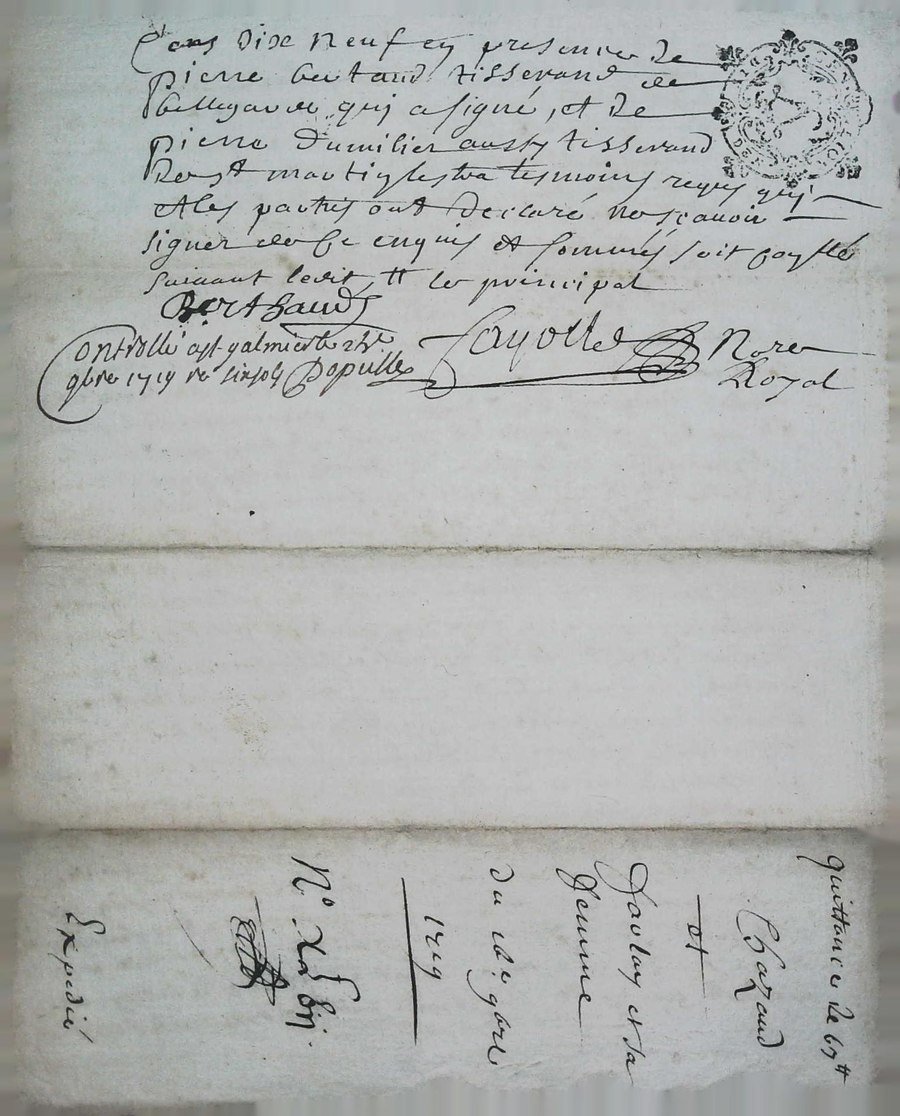 Cens Dix Neuf en presence de
pierre bertaud tisserand de
bellegarde qui a signé, et de
pierre Dumilier aussy tisserand
De st martin lestra tesmoins requis qui
et les parties ont declaré ne sçavoir
signer de ce enquis et sommés soit
suivant ledit le principal
Berthaud
Controllé a st galmier le
gbre 1719 re six sols Populle
Fayolle Nore
Royal
quittance de 67tt
Chazaud
et
femme
du gbre
1719
Expedié